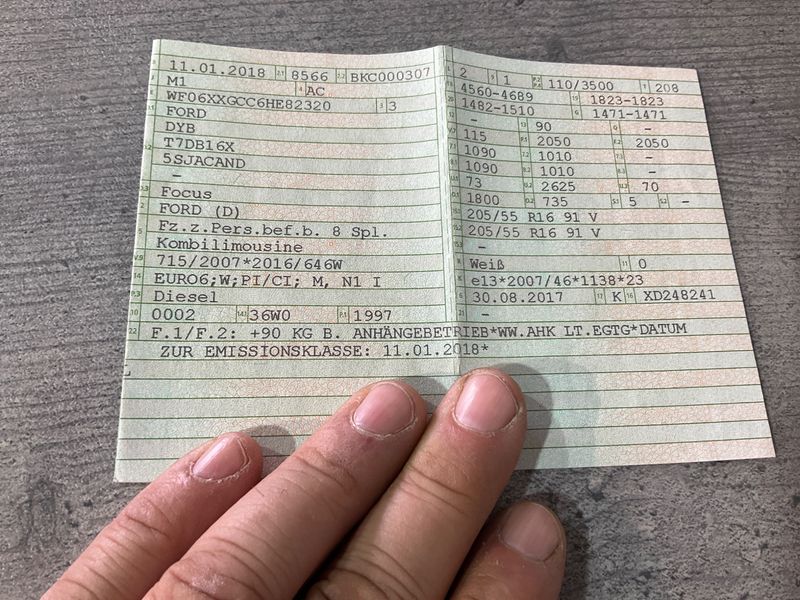 11.01.2018 2.1 8566 2.2 BKC000307
M1 AC
WF06XXGCC6HE82320 3
FORD
DYB
T7DB16X
5SJACAND
–
Focus
FORD (D)
Fz.z.Pers.bef.b. 8 Spl.
Kombilimousine
715/2007*2016/646W
EURO6;W;PI/CI; M, N1 I
Diesel
0002 36W0 1997
2 1 110/3500 208
4560-4689 1823-1823
1482-1510 1471-1471
– 90 –
115 2050 2050
1090 1010 –
1090 1010 –
73 2625 70
1800 735 5 –
205/55 R16 91 V
205/55 R16 91 V
–
Weiß 0
e13*2007/46*1138*23
30.08.2017 K XD248241
–
22 F.1/F.2: +90 KG B. ANHÄNGEBETRIEB*WW.AHK LT.EGTG*DATUM
ZUR EMISSIONSKLASSE: 11.01.2018*